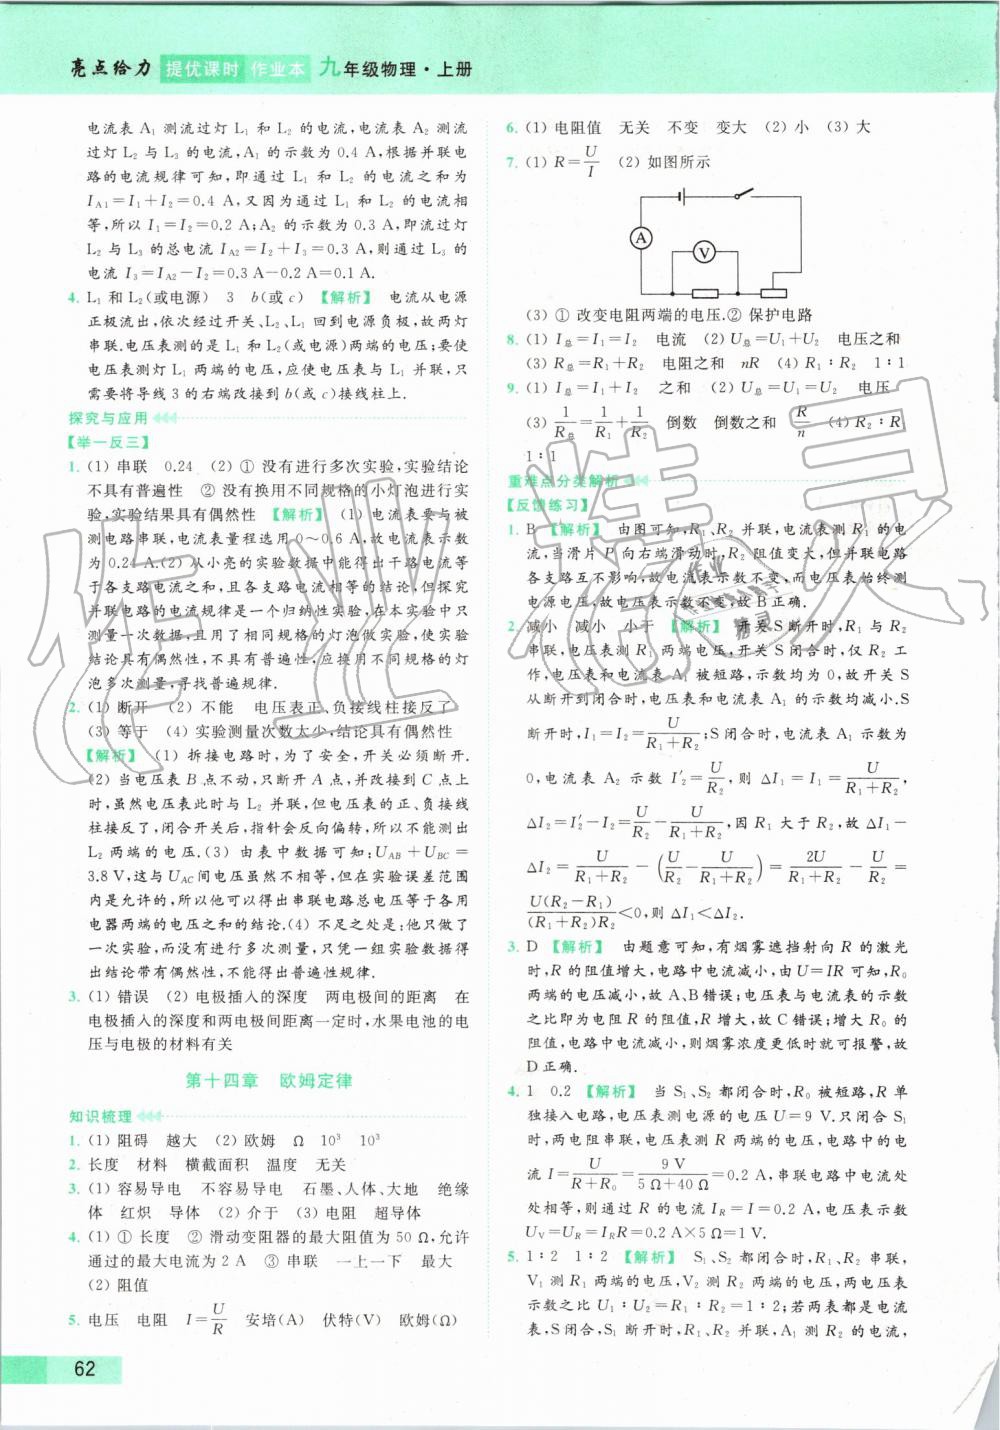 亮点给力 提优课时 作业本 九年级物理·上册
电流表 A₁ 测流过灯 L₁ 和 L₂ 的电流,电流表 A₂ 测流
过灯 L₂ 与 L₃ 的电流,A₁ 的示数为 0.4 A,根据并联电
路的电流规律可知,即通过 L₁ 和 L₂ 的电流之和为
I_A1=I₁+I₂=0.4 A,又因为通过 L₁ 和 L₂ 的电流相
等,所以 I₁=I₂=0.2 A;A₂ 的示数为 0.3 A,即流过灯
L₂ 与 L₃ 的总电流 I_A2=I₂+I₃=0.3 A,则通过 L₃ 的
电流 I₃=I_A2-I₂=0.3 A-0.2 A=0.1 A.
4. L₁ 和 L₂(或电源) 3 b(或 c) 【解析】 电流从电源
正极流出,依次经过开关、L₂、L₁ 回到电源负极,故两灯
串联.电压表测的是 L₁ 和 L₂(或电源)两端的电压;要使
电压表测灯 L₁ 两端的电压,应使电压表与 L₁ 并联,只
需要将导线 3 的右端改接到 b(或 c)接线柱上.
探究与应用
【举一反三】
1. (1) 串联 0.24 (2) ① 没有进行多次实验,实验结论
不具有普遍性 ② 没有换用不同规格的小灯泡进行实
验,实验结果具有偶然性 【解析】 (1) 电流表要与被
测电路串联,电流表量程选用 0～0.6 A,故电流表示数
为 0.24 A.(2) 从小亮的实验数据中能得出干路电流等
于各支路电流之和,且各支路电流相等的结论,但探究
并联电路的电流规律是一个归纳性实验,在本实验中只
测量一次数据,且用了相同规格的灯泡做实验,使实验
结论具有偶然性,不具有普遍性,应换用不同规格的灯
泡多次测量,寻找普遍规律.
2. (1) 断开 (2) 不能 电压表正、负接线柱接反了
(3) 等于 (4) 实验测量次数太少,结论具有偶然性
【解析】 (1) 拆接电路时,为了安全,开关必须断开.
(2) 当电压表 B 点不动,只断开 A 点,并改接到 C 点上
时,虽然电压表此时与 L₂ 并联,但电压表的正、负接线
柱接反了,闭合开关后,指针会反向偏转,所以不能测出
L₂ 两端的电压.(3) 由表中数据可知:U_AB+U_BC=
3.8 V,这与 U_AC 间电压虽然不相等,但在实验误差范围
内是允许的,所以可以得出串联电路总电压等于各用
电器两端的电压之和的结论.(4) 不足之处是:他只做了
一次实验,而没有进行多次测量,只凭一组实验数据得
出结论带有偶然性,不能得出普遍性规律.
3. (1) 错误 (2) 电极插入的深度 两电极间的距离 在
电极插入的深度和两电极间距离一定时,水果电池的电
压与电极的材料有关
第十四章 欧姆定律
知识梳理
1. (1) 阻碍 越大 (2) 欧姆 Ω 10³ 10³
2. 长度 材料 横截面积 温度 无关
3. (1) 容易导电 不容易导电 石墨、人体、大地 绝缘
体 红炽 导体 (2) 介于 (3) 电阻 超导体
4. (1) ① 长度 ② 滑动变阻器的最大阻值为 50 Ω,允许
通过的最大电流为 2 A ③ 串联 一上一下 最大
(2) 阻值
5. 电压 电阻 I=U/R 安培(A) 伏特(V) 欧姆(Ω)
62
6. (1) 电阻值 无关 不变 变大 (2) 小 (3) 大
7. (1) R=U/I (2) 如图所示
A V
(3) ① 改变电阻两端的电压.② 保护电路
8. (1) I总=I₁=I₂ 电流 (2) U总=U₁+U₂ 电压之和
(3) R总=R₁+R₂ 电阻之和 nR (4) R₁∶R₂ 1∶1
9. (1) I总=I₁+I₂ 之和 (2) U总=U₁=U₂ 电压
(3) 1/R总=1/R₁+1/R₂ 倒数 倒数之和 R/n (4) R₂∶R₁
1∶1
重难点分类解析
【反馈练习】
1. B 【解析】 由图可知,R₁、R₂ 并联,电流表测 R₁ 的电
流,当滑片 P 向右端滑动时,R₂ 阻值变大,但并联电路
各支路互不影响,故电流表示数不变,而电压表始终测
电源电压,故电压表示数不变,故 B 正确.
2. 减小 减小 小于 【解析】 开关 S 断开时,R₁ 与 R₂
串联,电压表测 R₁ 两端电压,开关 S 闭合时,仅 R₂ 工
作,电压表和电流表 A₁ 被短路,示数均为 0,故开关 S
从断开到闭合时,电压表和电流表 A₁ 的示数均减小.S
断开时,I₁=I₂=U/(R₁+R₂);S 闭合时,电流表 A₁ 示数为
0,电流表 A₂ 示数 I′₂=U/R₂,则 ΔI₁=I₁=U/(R₁+R₂),
ΔI₂=I′₂-I₂=U/R₂-U/(R₁+R₂),因 R₁ 大于 R₂,故 ΔI₁-
ΔI₂=U/(R₁+R₂)-(U/R₂-U/(R₁+R₂))=2U/(R₁+R₂)-U/R₂=
U(R₂-R₁)/((R₁+R₂)R₂)<0,则 ΔI₁<ΔI₂.
3. D 【解析】 由题意可知,有烟雾遮挡射向 R 的激光
时,R 的阻值增大,电路中电流减小,由 U=IR 可知,R₀
两端的电压减小,故 A、B 错误;电压表与电流表的示数
之比即为电阻 R 的阻值,R 增大,故 C 错误;增大 R₀ 的
阻值,电流会更小,则烟雾浓度更低时,开始报警,故
D 正确.
4. 1 0.2 【解析】 当 S₁、S₂ 都闭合时,R₀ 被短路,R 单
独接入电路,电压表测电源的电压 U=9 V.只闭合 S₁
时,两电阻串联,电压表测 R 两端的电压,电路中的电
流 I=U/(R+R₀)=9 V/(5 Ω+40 Ω)=0.2 A,串联电路中电流处
处相等,则通过 R 的电流 I_R=I=0.2 A,电压表示数
U_V=U_R=I_R R=0.2 A×5 Ω=1 V.
5. 1∶2 1∶2 【解析】 S₁、S₂ 都闭合时,R₁、R₂ 串联,
V₁ 测 R₁ 两端的电压,V₂ 测 R₂ 两端的电压,两电压表
示数之比 U₁∶U₂=R₁∶R₂=1∶2;若两表都是电流
表,S 闭合,S₁ 断开时,R₁、R₂ 并联,A₁ 测 R₂ 的电流,
作业精灵